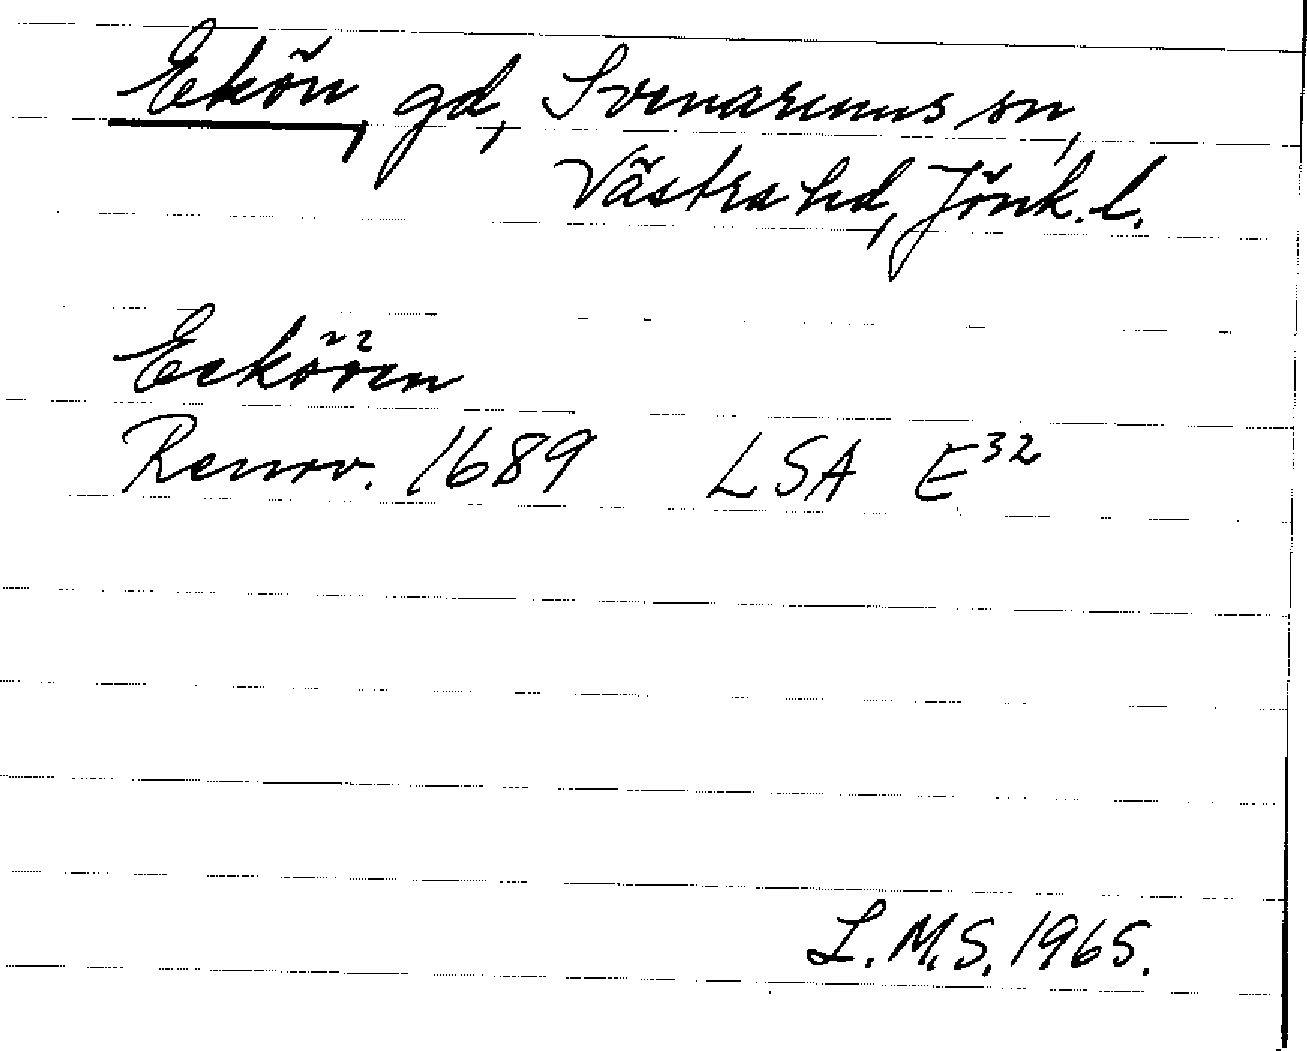 Ekön, gd, Svenarums sn,
Västra hd, Jönk. l.
Eekööen
Renov. 1689 LSA E³²
L. M. S. 1965.